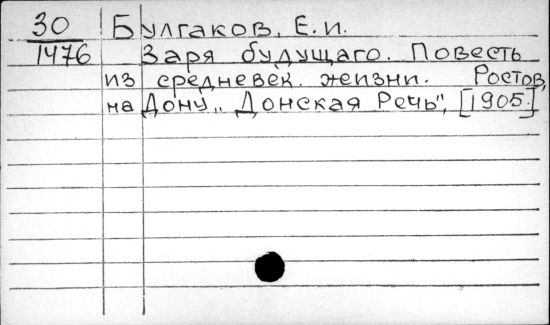 30 Булгаков, Е.И.
1476 Заря будущаго. Повесть
из средневек. жизни. Ростов,
на Дону, "Донская Речь", [1905.]